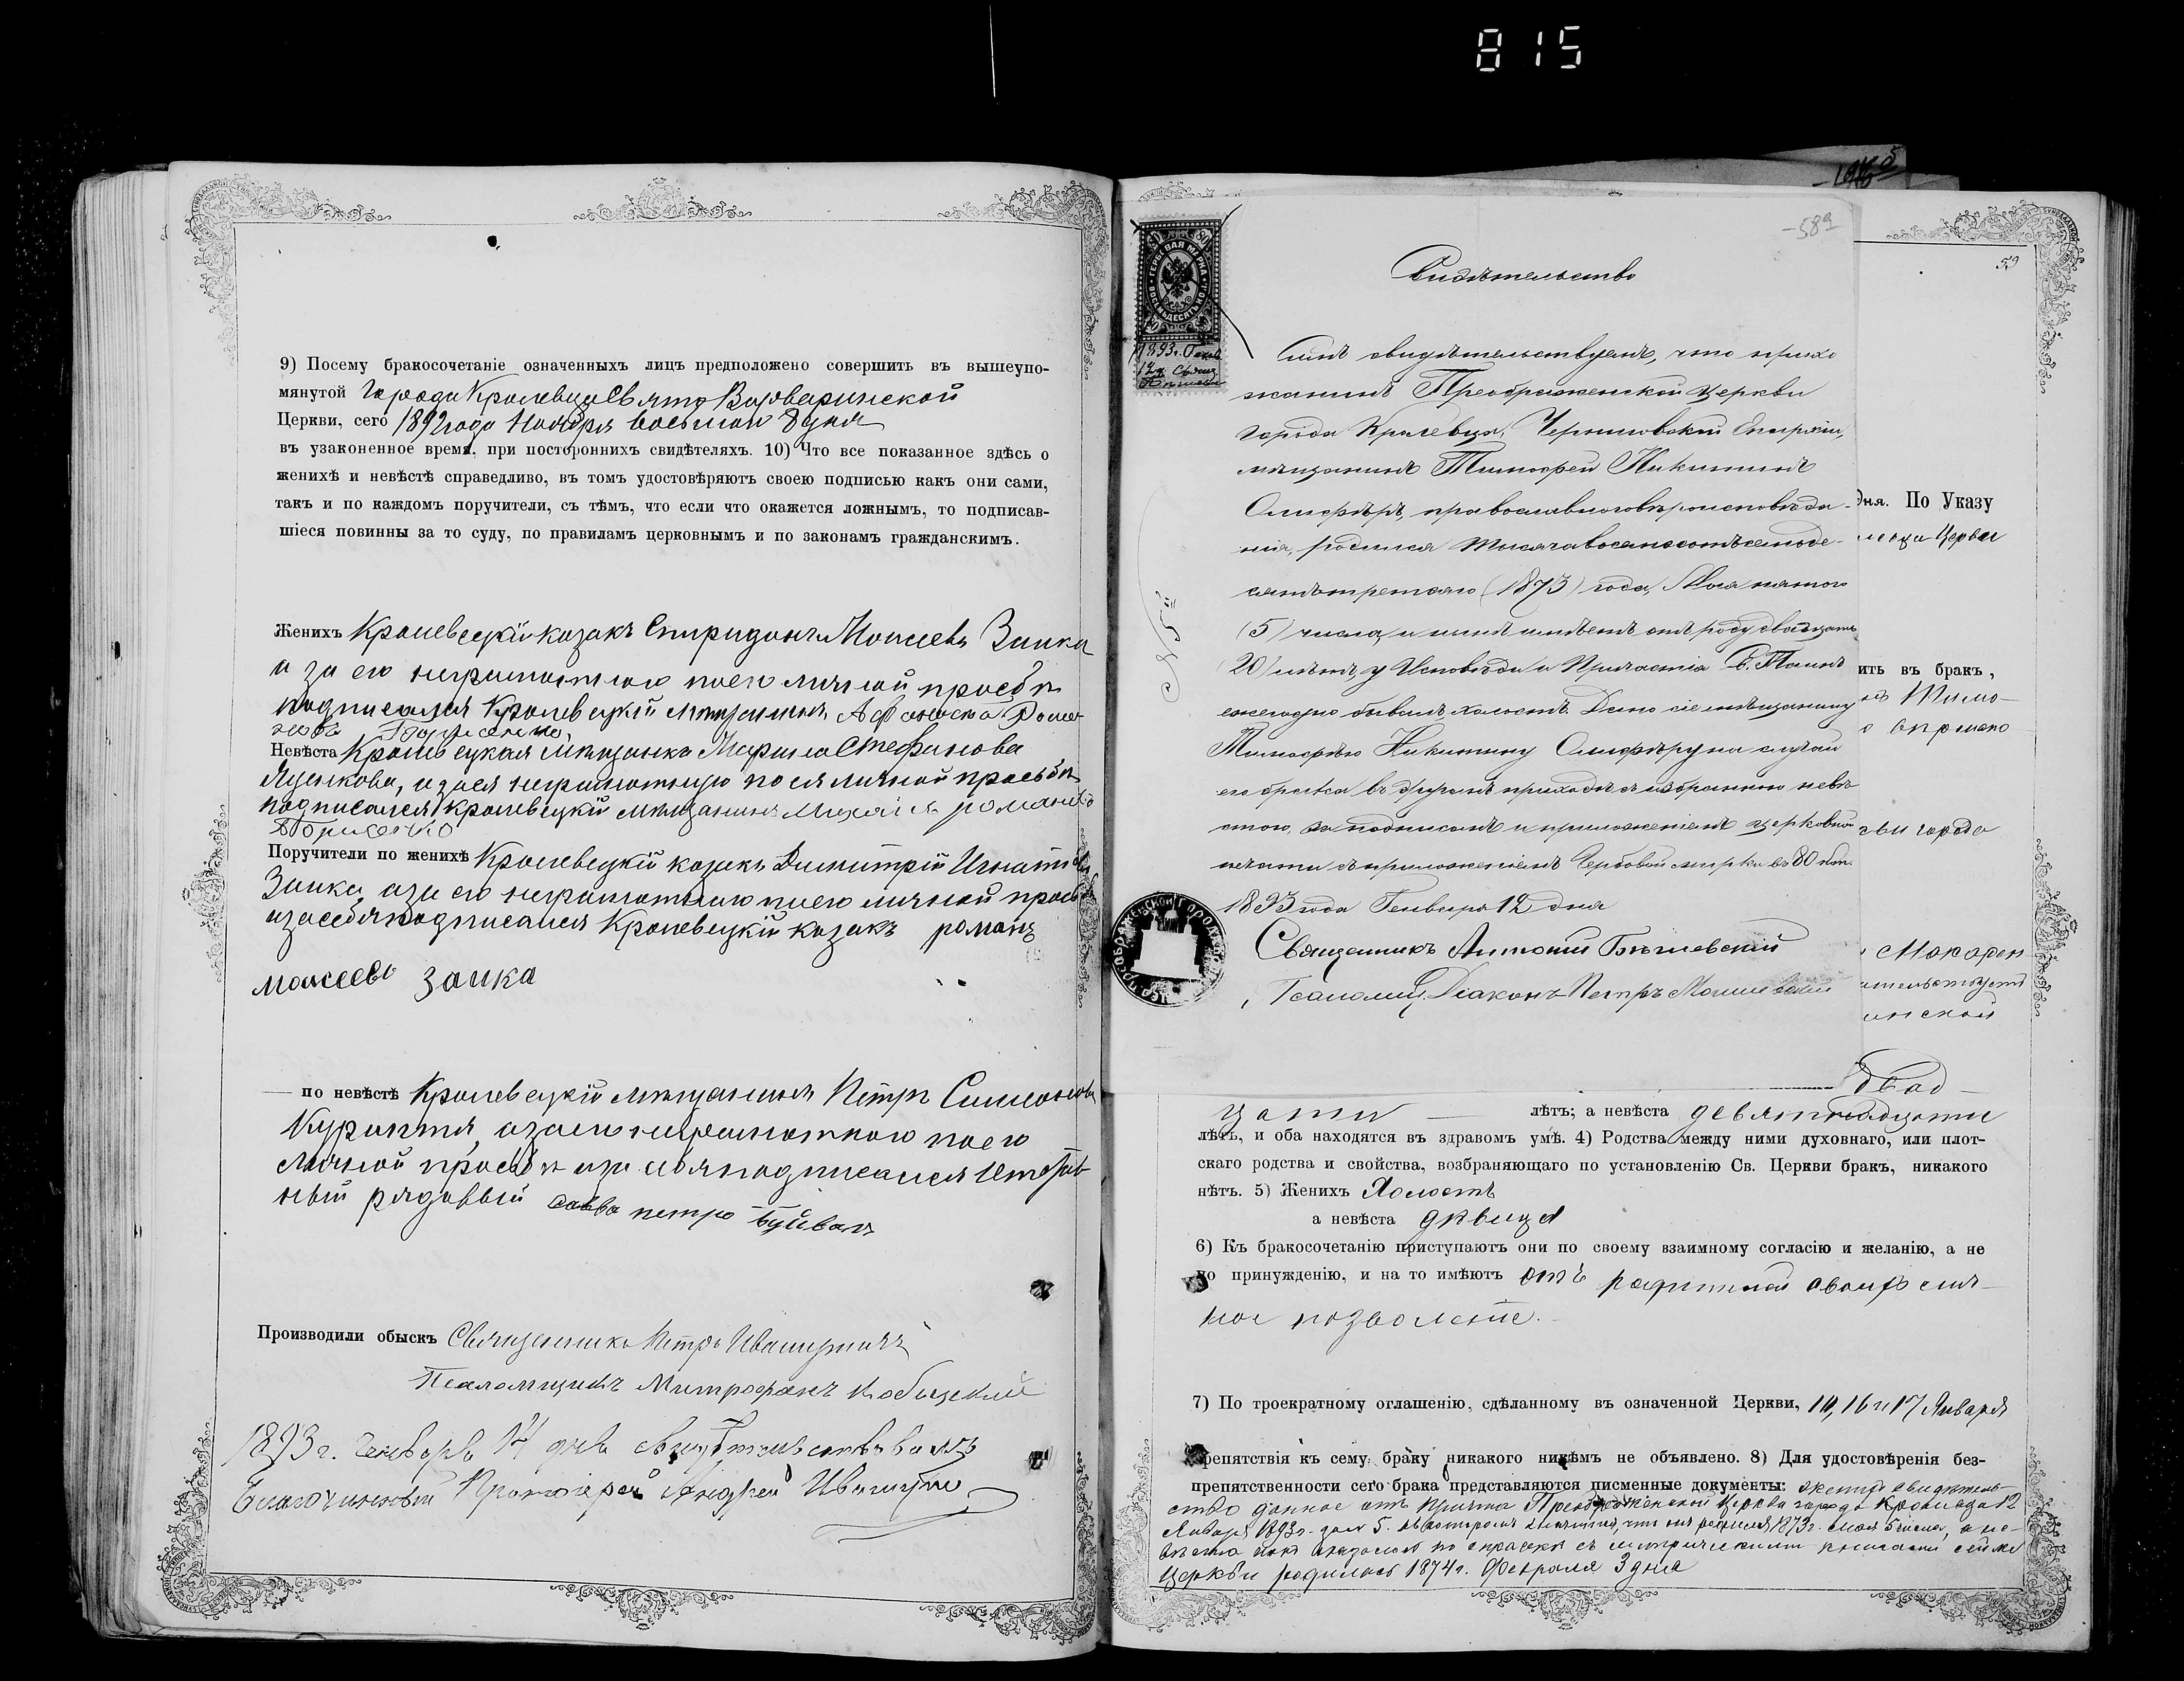 815
9) Посему бракосочетаніе означенныхъ лицъ предположено совершить въ вышеупо-
мянутой города Кролевца Свято Варваринской
Церкви, сего 1892 года Ноября восьмаго дня
въ узаконенное время, при постороннихъ свидѣтеляхъ. 10) Что все показанное здѣсь о
женихѣ и невѣстѣ справедливо, въ томъ удостовѣряютъ своею подписью какъ они сами,
такъ и по каждомъ поручители, съ тѣмъ, что если что окажется ложнымъ, то подписав-
шіеся повинны за то суду, по правиламъ церковнымъ и по законамъ гражданскимъ.
Женихъ Кролевецкій козакъ Спиридонъ Моисеевъ Заика
а за его неграмотного по его личной просьбѣ
подписался Кролевецкій мѣщанинъ
Невѣста Кролевецкая мѣщанка Марина Стефанова
Яценкова, а за ея неграмотную по ея личной просьбѣ
подписался Кролевецкій мѣщанинъ Михаилъ романовъ
Поручители по женихѣ Кролевецкій козакъ Димитрій Игнатьевъ
Заика, а за его неграмотного по его личной просьбѣ
и за себя подписался Кролевецкій козакъ романъ
моисеевъ заика
по невѣстѣ Кролевецкій мѣщанинъ Петръ Симоновъ
а за его неграмотного по его
личной просьбѣ и за себя подписался
рядовый савва петро
Производили обыскъ Священникъ Петръ Иваницкій
Псаломщикъ Митрофанъ
1893 г. Генваря дня свидѣтельствовалъ
Благочинный Протоіерей Андрей
-589
59
ГЕРБОВАЯ МАРКА
ВОСЕМЬДЕСЯТЪ КОП.
80
1893 г. Генв.
12 д. Свящ.
Свидѣтельство
Симъ свидѣтельствуемъ, что прихо
жанинъ Преображенской церкви
города Кролевца, Черниговской Епархіи,
мѣщанинъ Тимофей Никитинъ
Олифѣръ, православного вѣроисповѣда-
нія, родился тысяча восемьсотъ семьде-
сятъ третяго (1873) года, Мая пятого
(5) числа, и нынѣ имѣетъ отъ роду двадцать
(20) лѣтъ, у Исповѣди и Причастія Св. Таинъ
ежегодно бывалъ, холостъ. Дано сіе мѣщанину
Тимофѣю Никитину Олифѣру на случай
его брака въ другомъ приходѣ съ избранною невѣ
стою, за подписомъ и приложеніемъ церковной
печати съ приложеніемъ Гербовой марки въ 80 коп.
1893 года Генваря 12 дня
№ 5й
Священникъ Антоній
Псаломщ. Діаконъ Петръ
дня. По Указу
Церкви
ить въ бракъ,
Тимо-
города
Макарен
двад-
цати — лѣтъ; а невѣста девятнадцати
лѣтъ, и оба находятся въ здравомъ умѣ. 4) Родства между ними духовнаго, или плот-
скаго родства и свойства, возбраняющаго по установленію Св. Церкви бракъ, никакого
нѣтъ. 5) Женихъ Холостъ
а невѣста дѣвица
6) Къ бракосочетанію приступаютъ они по своему взаимному согласію и желанію, а не
по принужденію, и на то имѣютъ отъ родителей своихъ сло-
ное позволеніе.
7) По троекратному оглашенію, сдѣланному въ означенной Церкви, 10, 16 и 17 Января
препятствія къ сему браку никакого никѣмъ не объявлено. 8) Для удостовѣренія без-
препятственности сего брака представляются писменные документы: свидѣтель-
ство данное отъ причта Преображенской Церкви города Кролевца 12
Января 1893 г. за № 5. въ которомъ значится, что онъ родился 1873 г. мая 5 числа, а не-
вѣста какъ оказалось по справкѣ съ метрическими книгами сей же
Церкви родилась 1874 г. Февраля 3 дня